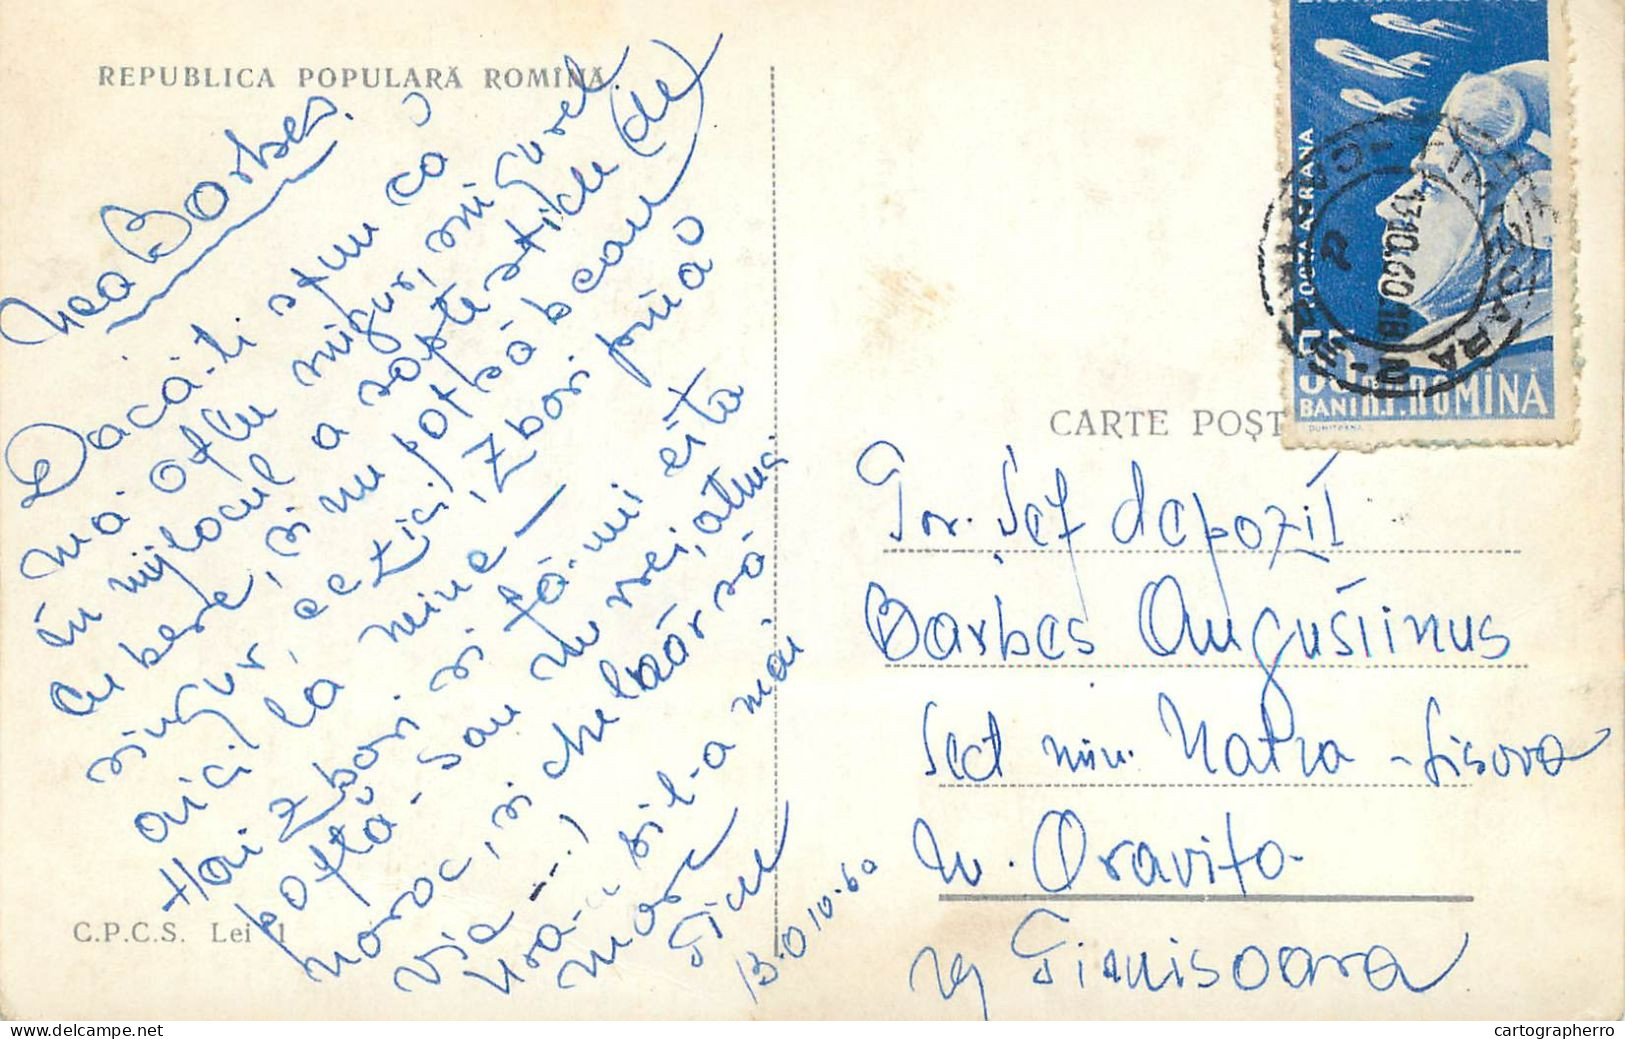 REPUBLICA POPULARĂ ROMÎNĂ
nea Barbes.
Dacă-ti spun că
mă aflu singur, singurel
în mijlocul a șapte sticle (de)
cu bere, si nu pot să beau
singur, ce zici, zbori pînă
aici la mine —
Hai zbori si fă-mi cita
poftă - sau nu vrei, atunci
noroc, si chelnăr să
vie ---!
Ura-a si l-a mai
mare
13.010.60
C.P.C.S. Lei 1
CARTE POȘT
POȘTA AERIANA
55
BANI R.P.ROMÎNĂ
DUMITRANA
TIMISOARA
13.10.60.18
Tov. Șef depozit
Barbes Augustinus
Sect min. Natra - Lisova
r. Oravita
reg Timisoara
cartographerro